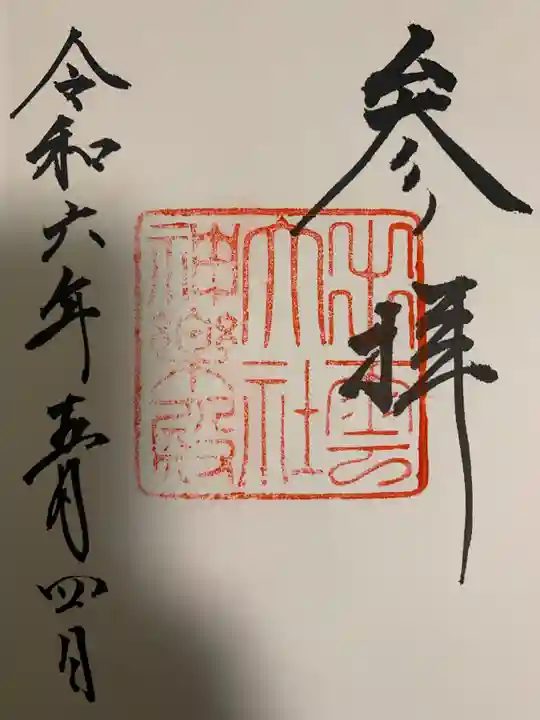 参拝
出雲
大社
神楽殿
令和六年五月四日